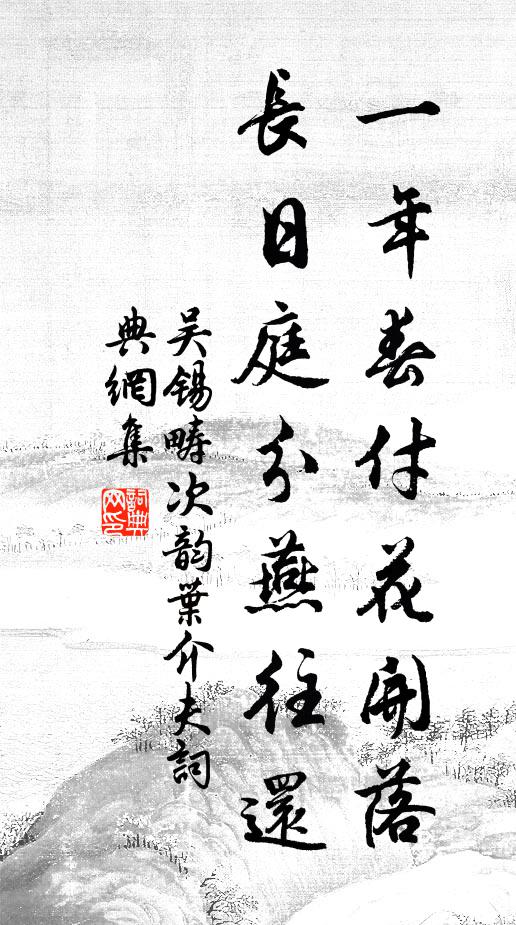 一年春付花開落
長日庭分燕往還
吳錫疇次韵葉介夫詞
典網集
詞典網印